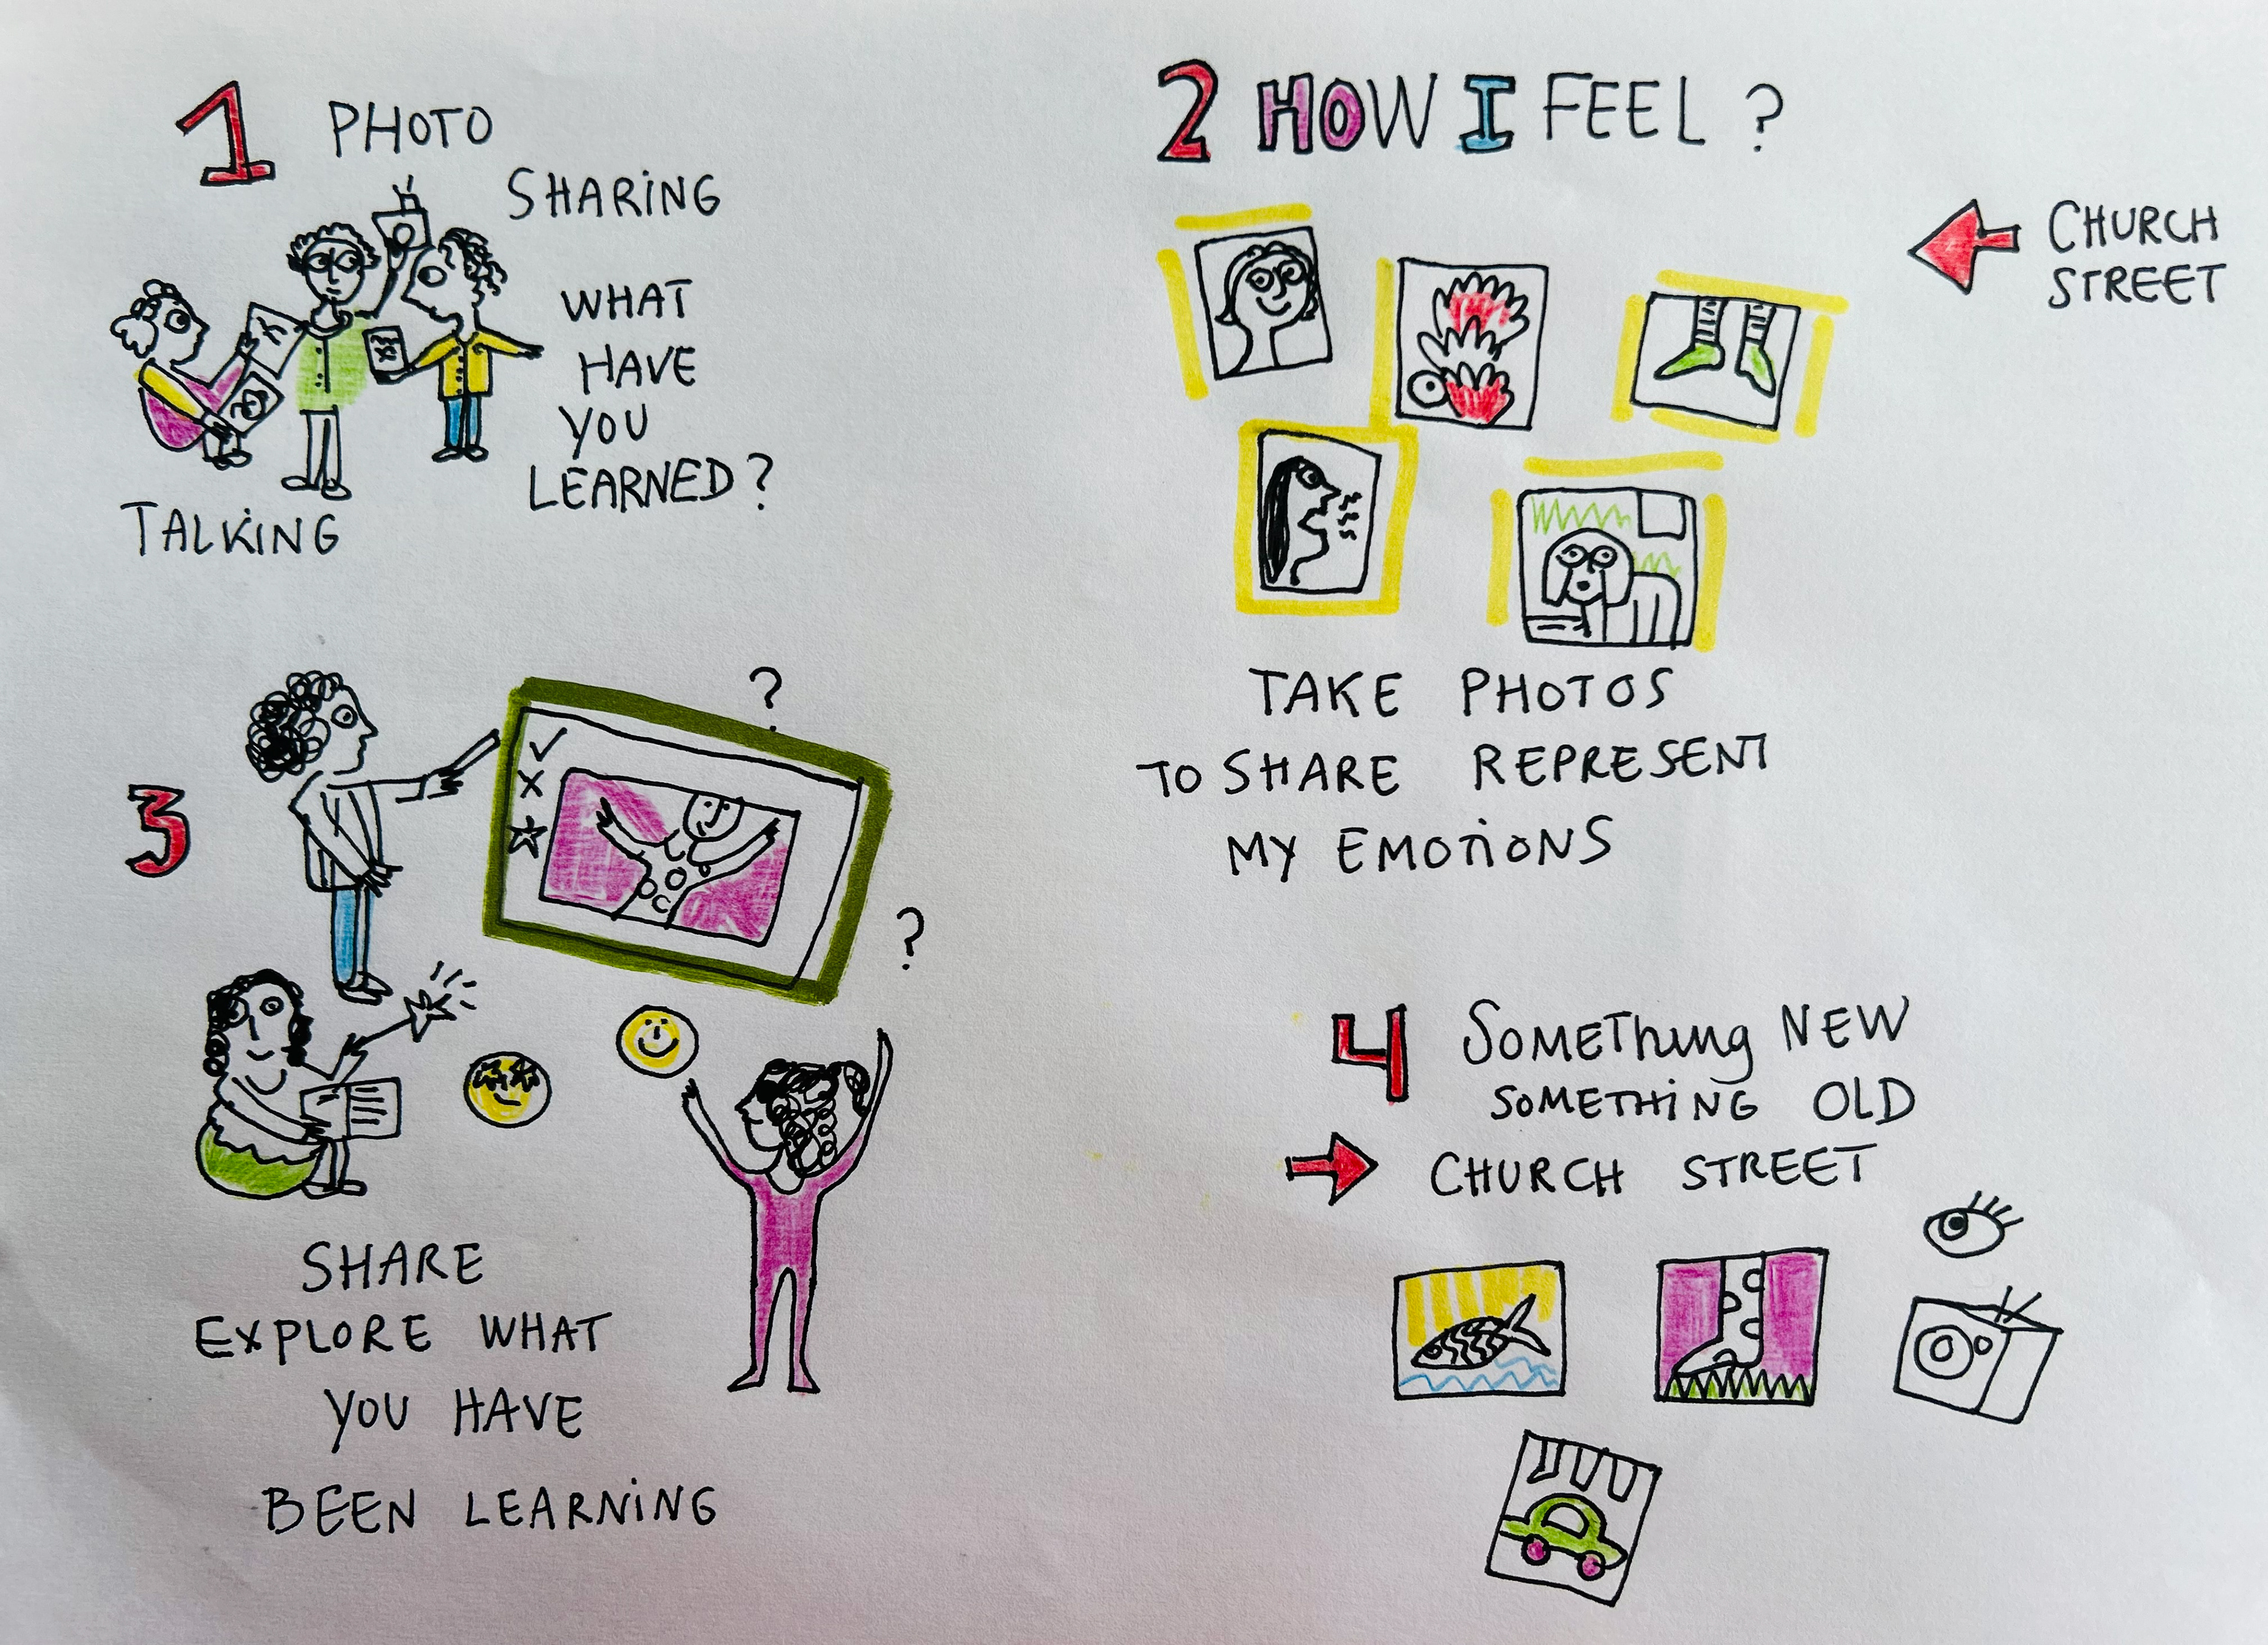 1 PHOTO
SHARING
WHAT
HAVE
YOU
LEARNED?
TALKING
2 HOW I FEEL?
CHURCH
STREET
TAKE PHOTOS
TO SHARE REPRESENT
MY EMOTIONS
3
?
?
SHARE
EXPLORE WHAT
YOU HAVE
BEEN LEARNING
4 SOMEThing NEW
SOMETHING OLD
CHURCH STREET